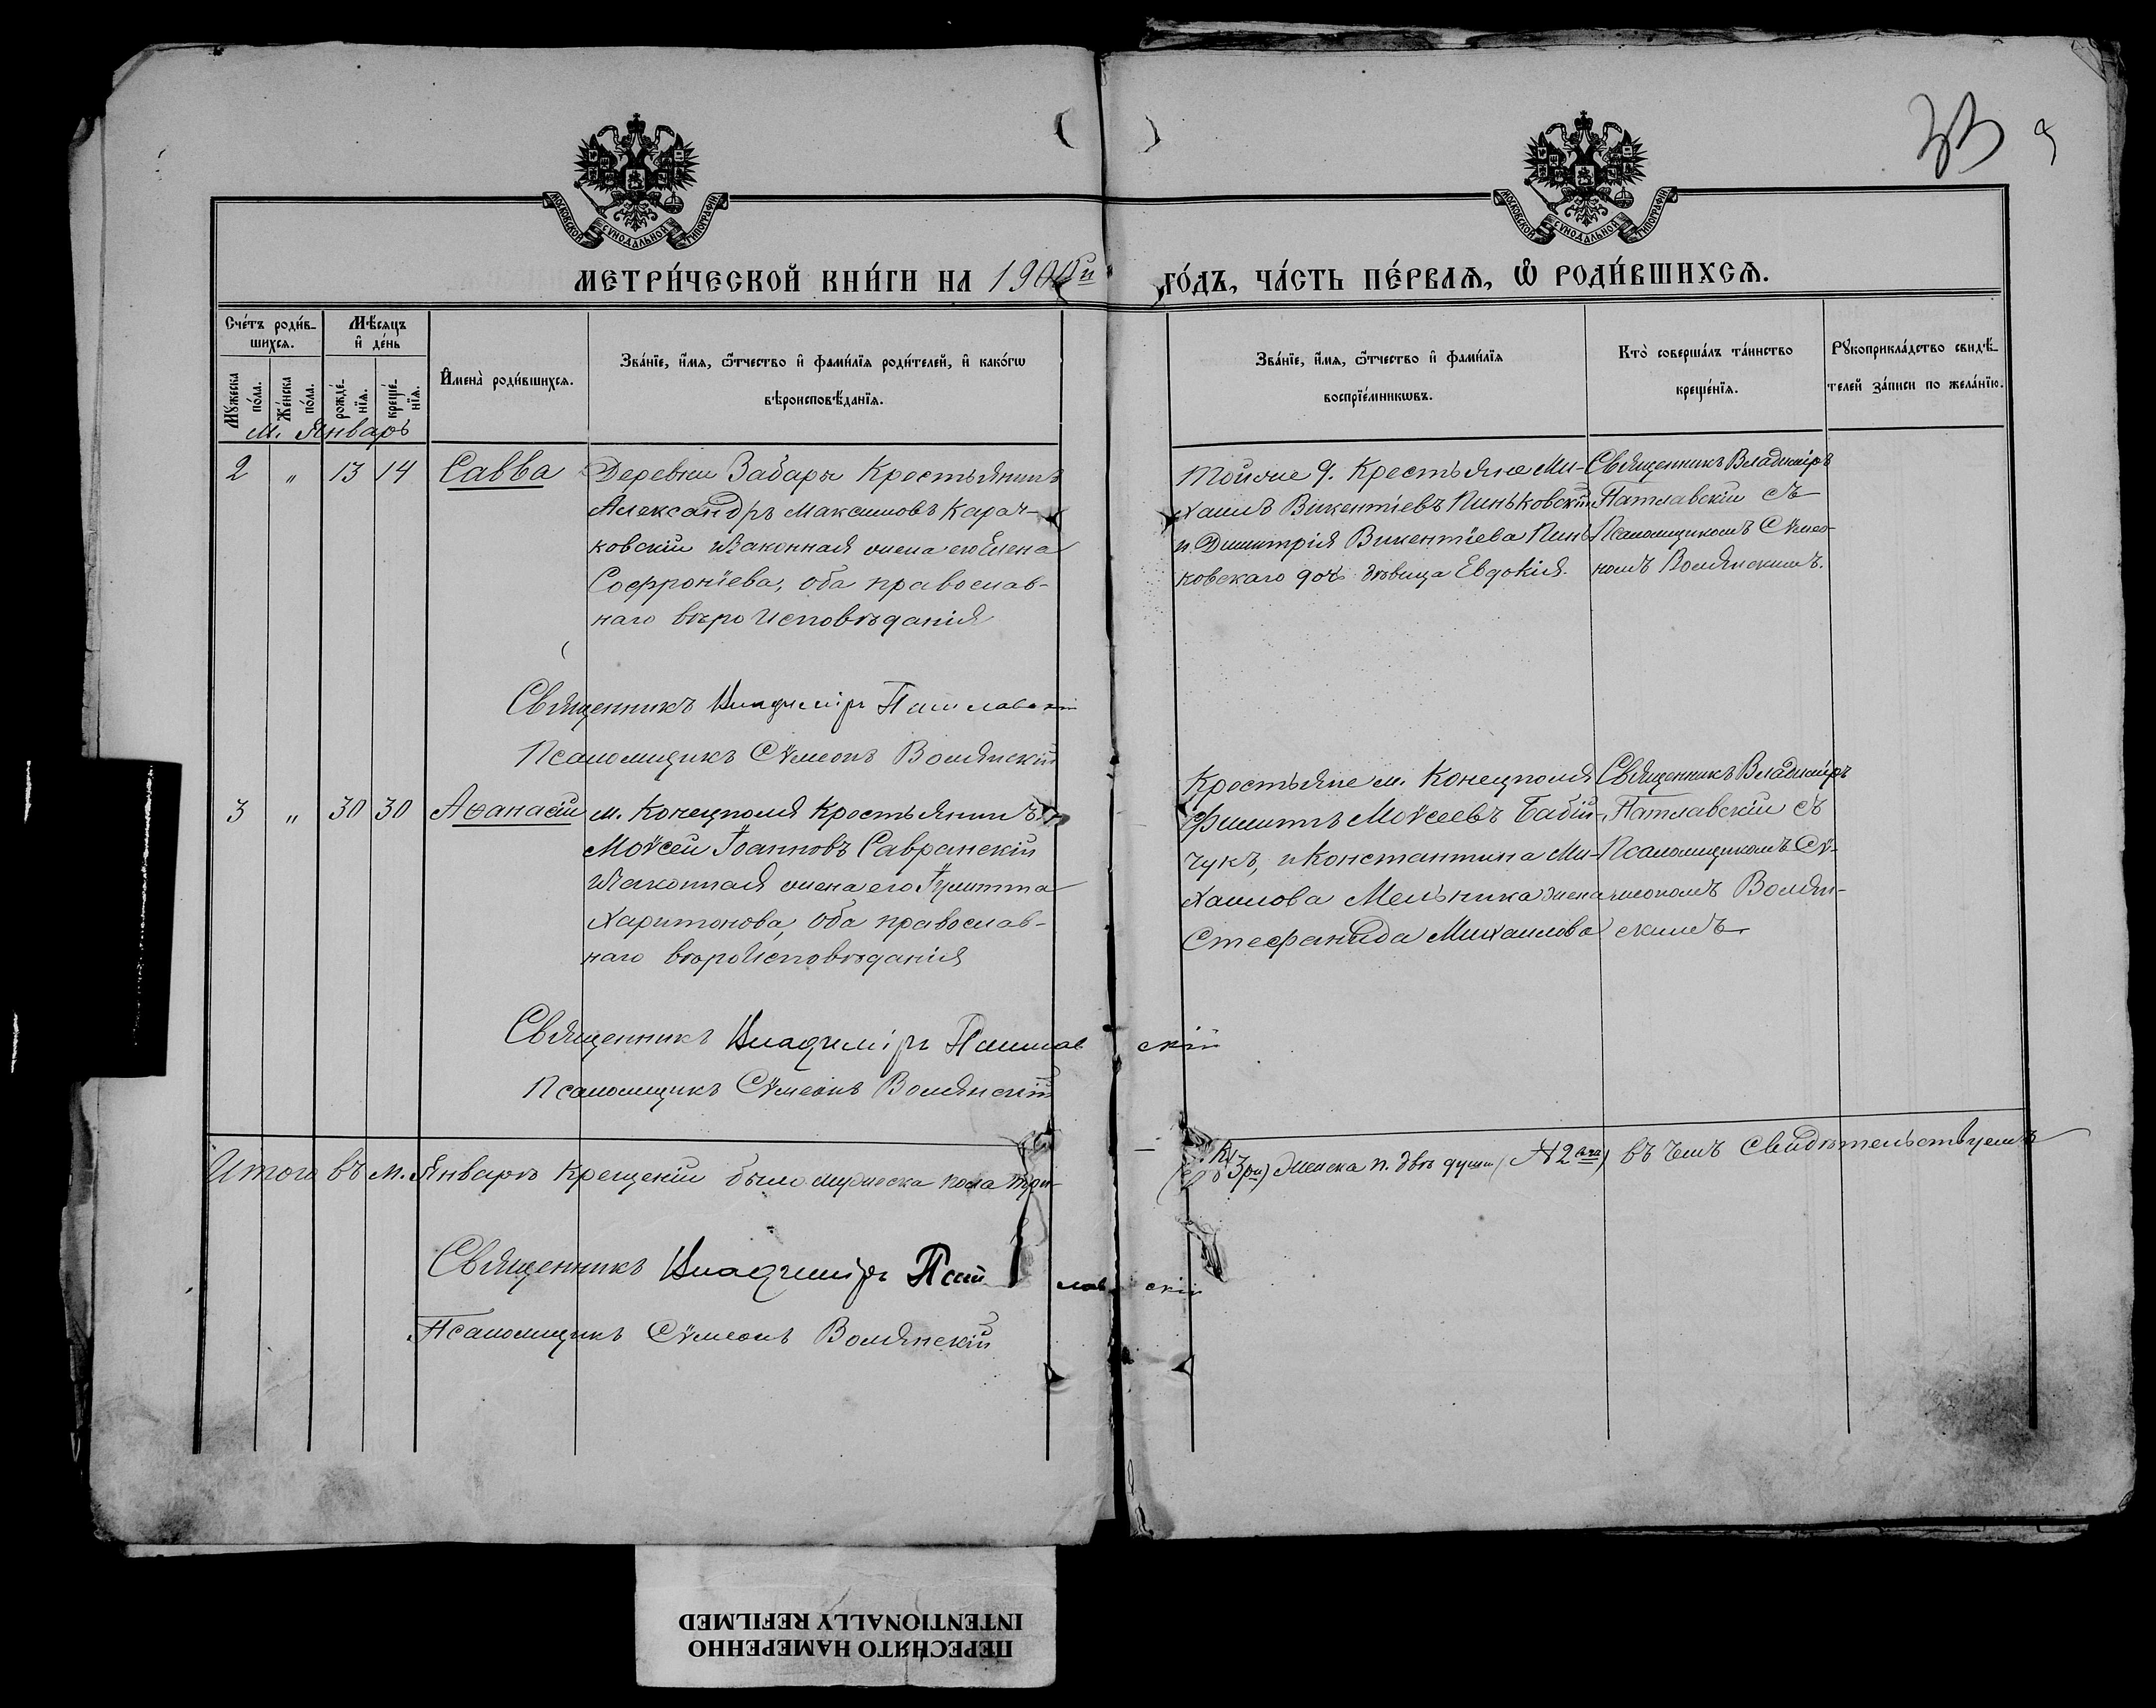 33 9
МОСКОВСКОЙ СѴНОДАЛЬНОЙ ТИПОГРАФІИ
МОСКОВСКОЙ СѴНОДАЛЬНОЙ ТИПОГРАФІИ
МЕТРИ́ЧЕСКОЙ КНИ́ГИ НА 190
ГО́ДЪ, ЧА́СТЬ ПЕ́РВАѦ, Ѡ҆ РОДИ́ВШИХСѦ.
Сче́тъ роди́в-
шихсѧ.
Мѣ́сѧцъ
и҆ де́нь
Мꙋ́жеска
по́ла.
Же́нска
по́ла.
рожде́-
нїѧ.
креще́-
нїѧ.
И҆мена̀ роди́вшихсѧ.
Зва́нїе, и҆́мѧ, ѻ҆́тчество и҆ фами́лїѧ роди́телей, и҆ како́гѡ
вѣроисповѣ́данїѧ.
Зва́нїе, и҆́мѧ, ѻ҆́тчество и҆ фами́лїѧ
воспрїе́мникѡвъ.
Кто̀ соверша́лъ та́инство
креще́нїѧ.
Рꙋкоприкла́дство свидѣ́-
телей за́писи по жела́нїю.
м. Январь
2 " 13 14 Савва Деревни Забары Крестьянинъ
Александръ Максимовъ Карач-
ковскій и законная жена его Елена
Софроніева, оба православ-
наго вѣроисповѣданія
Тойже д. Крестьяне Ми-
хаилъ Викентіевъ Пиньковскій
и Димитрія Викентіева Пинь-
ковскаго дочь дѣвица Евдокія.
Священникъ Владиміръ
Патлавскій съ
Псаломщикомъ Сѵмео-
номъ Волянскимъ.
Священникъ Владиміръ Патлавскій
Псаломщикъ Сѵмеонъ Волянскій
3 " 30 30 Аѳанасій м. Конецполя Крестьянинъ
Моѵсей Іоанновъ Савранскій
и законная жена его Іулитта
Харитонова, оба православ-
наго вѣроисповѣданія
Крестьяне м. Конецполя
Филиппъ Моѵсеевъ Бабій-
чукъ, и Константина Ми-
хаилова Мельника жена
Стефанида Михаилова
Священникъ Владиміръ
Патлавскій съ
Псаломщикомъ Сѵ-
меономъ Волян-
скимъ
Священникъ Владиміръ Патлавскій
Псаломщикъ Сѵмеонъ Волянскій
Итого въ м. Январѣ Крещеній было мужеска пола три
женска п. двѣ души (№ 2) въ чемъ свидѣтельствуемъ
Священникъ Владиміръ Патлавскій
Псаломщикъ Сѵмеонъ Волянскій
ПЕРЕСНЯТО НАМЕРЕННО
INTENTIONALLY REFILMED